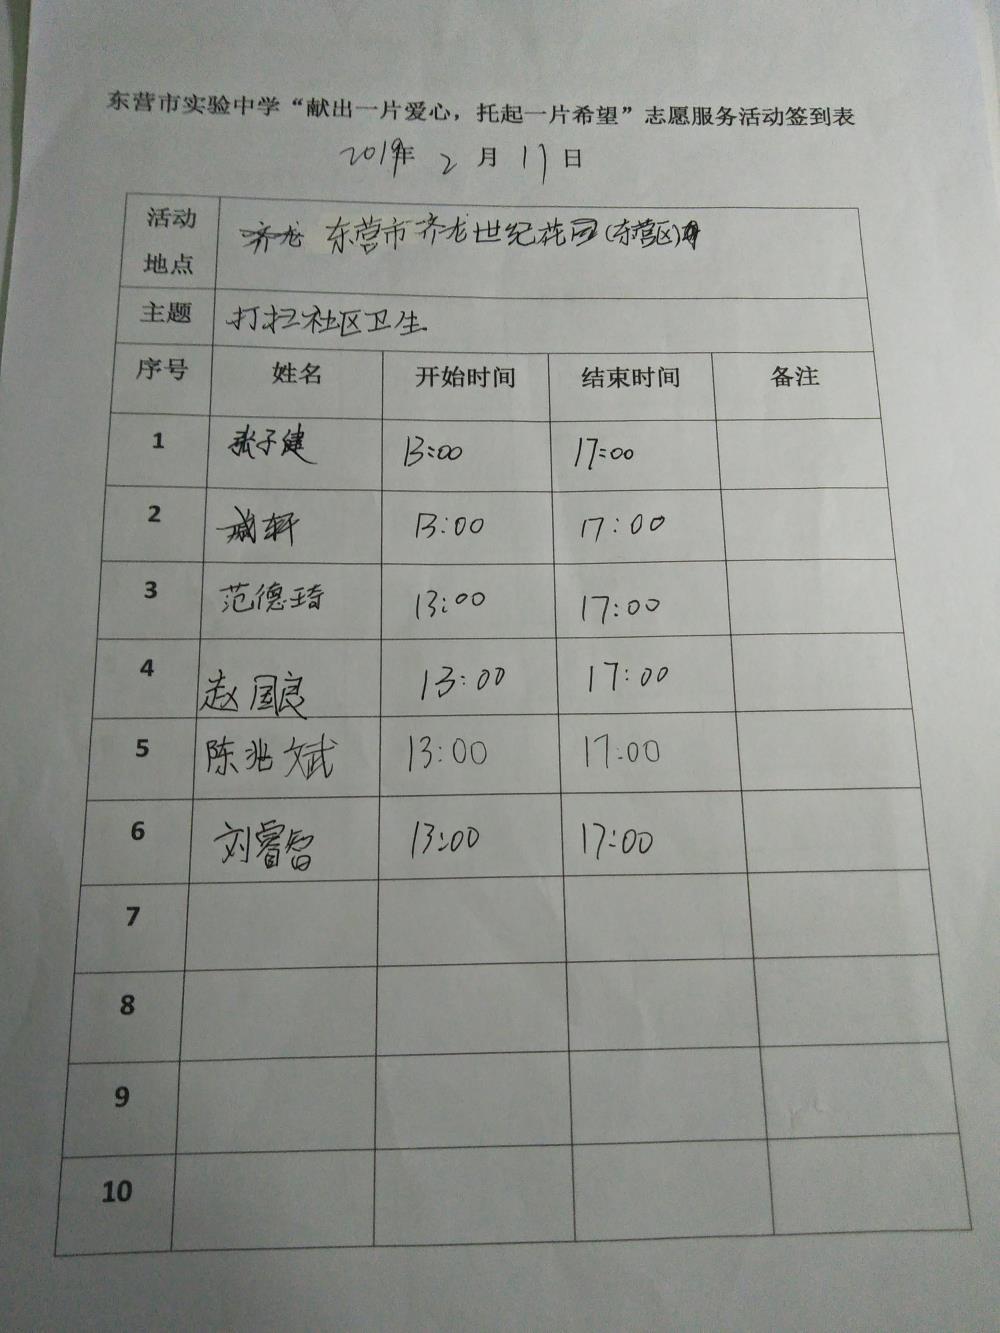 东营市实验中学“献出一片爱心，托起一片希望”志愿服务活动签到表
2019年 2 月 17 日
活动地点 东营市齐龙世纪花园(东营区)
主题 打扫社区卫生
序号 姓名 开始时间 结束时间 备注
1 张子健 13:00 17:00
2 13:00 17:00
3 范德琦 13:00 17:00
4 赵国良 13:00 17:00
5 陈兆斌 13:00 17:00
6 刘睿智 13:00 17:00
7
8
9
10